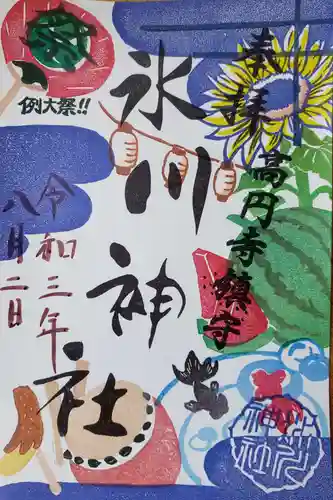 奉拝
高円寺鎮守
氷川神社
例大祭!!
令和三年
八月二日